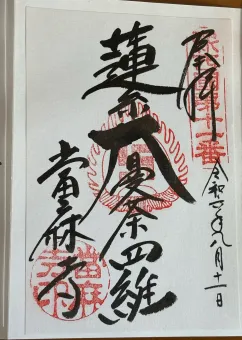 奉拝
第十一番
令和六年八月十一日
蓮糸大曼荼羅
當麻寺